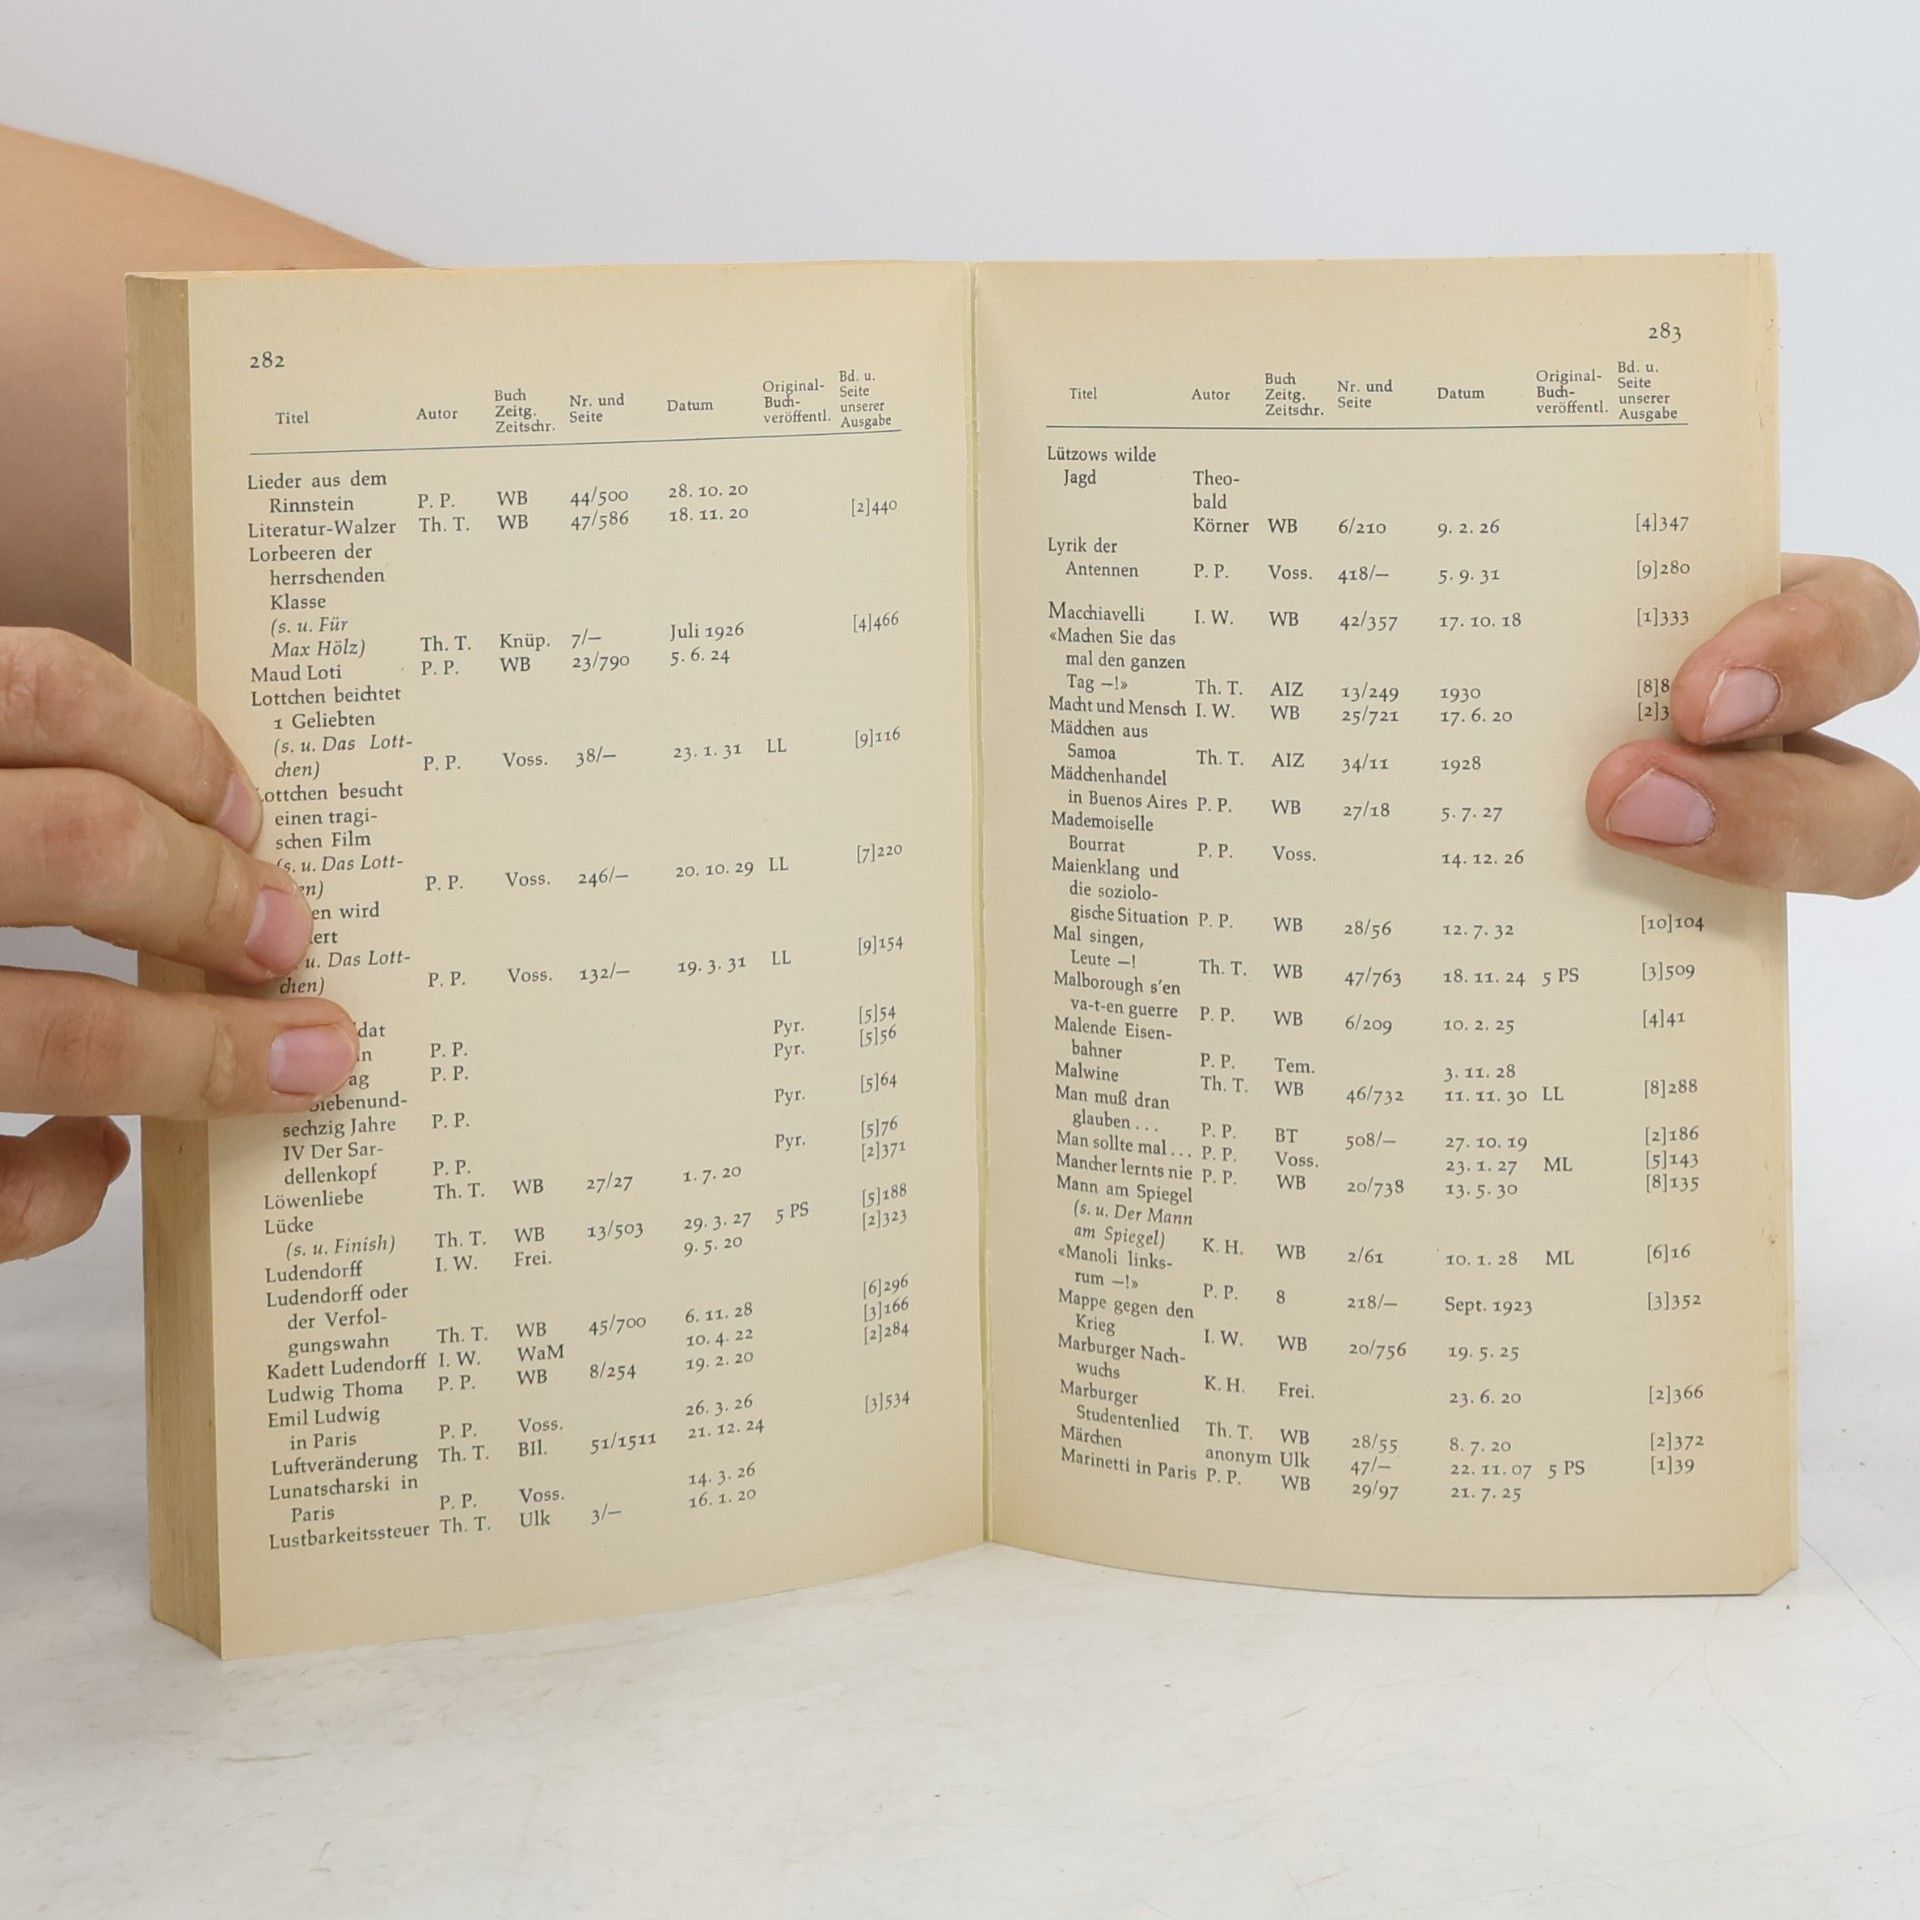 282
Titel Autor Buch Zeitg. Zeitschr. Nr. und Seite Datum Original-Buch-veröffentl. Bd. u. Seite unserer Ausgabe
Lieder aus dem
Rinnstein P. P. WB 44/500 28. 10. 20
Literatur-Walzer Th. T. WB 47/586 18. 11. 20 [2]440
Lorbeeren der
herrschenden
Klasse
(s. u. Für
Max Hölz) Th. T. Knüp. 7/— Juli 1926 [4]466
Maud Loti P. P. WB 23/790 5. 6. 24
Lottchen beichtet
1 Geliebten
(s. u. Das Lott-
chen) P. P. Voss. 38/— 23. 1. 31 LL [9]116
Lottchen besucht
einen tragi-
schen Film
(s. u. Das Lott-
P. P. Voss. 246/— 20. 10. 29 LL [7]220
wird
u. Das Lott-
chen) P. P. Voss. 132/— 19. 3. 31 LL [9]154
P. P. Pyr. [5]54
P. P. Pyr. [5]56
Siebenund-
sechzig Jahre P. P. Pyr. [5]64
IV Der Sar-
dellenkopf P. P. Pyr. [5]76
Löwenliebe Th. T. WB 27/27 1. 7. 20 [2]371
Lücke
(s. u. Finish) Th. T. WB 13/503 29. 3. 27 5 PS [5]188
Ludendorff I. W. Frei. 9. 5. 20 [2]323
Ludendorff oder
der Verfol-
gungswahn Th. T. WB 45/700 6. 11. 28 [6]296
Kadett Ludendorff I. W. WaM 10. 4. 22 [3]166
Ludwig Thoma P. P. WB 8/254 19. 2. 20 [2]284
Emil Ludwig
in Paris P. P. Voss. 26. 3. 26
Luftveränderung Th. T. BIl. 51/1511 21. 12. 24 [3]534
Lunatscharski in
Paris P. P. Voss. 14. 3. 26
Lustbarkeitssteuer Th. T. Ulk 3/— 16. 1. 20
283
Titel Autor Buch Zeitg. Zeitschr. Nr. und Seite Datum Original-Buch-veröffentl. Bd. u. Seite unserer Ausgabe
Lützows wilde
Jagd Theo-
bald
Körner WB 6/210 9. 2. 26 [4]347
Lyrik der
Antennen P. P. Voss. 418/— 5. 9. 31 [9]280
Macchiavelli I. W. WB 42/357 17. 10. 18 [1]333
«Machen Sie das
mal den ganzen
Tag —!» Th. T. AIZ 13/249 1930
Macht und Mensch I. W. WB 25/721 17. 6. 20
Mädchen aus
Samoa Th. T. AIZ 34/11 1928
Mädchenhandel
in Buenos Aires P. P. WB 27/18 5. 7. 27
Mademoiselle
Bourrat P. P. Voss. 14. 12. 26
Maienklang und
die soziolo-
gische Situation P. P. WB 28/56 12. 7. 32 [10]104
Mal singen,
Leute —! Th. T. WB 47/763 18. 11. 24 5 PS [3]509
Malborough s'en
va-t-en guerre P. P. WB 6/209 10. 2. 25 [4]41
Malende Eisen-
bahner P. P. Tem. 3. 11. 28
Malwine Th. T. WB 46/732 11. 11. 30 LL [8]288
Man muß dran
glauben . . . P. P. BT 508/— 27. 10. 19 [2]186
Man sollte mal . . . P. P. Voss. 23. 1. 27 ML [5]143
Mancher lernts nie P. P. WB 20/738 13. 5. 30 [8]135
Mann am Spiegel
(s. u. Der Mann
am Spiegel) K. H. WB 2/61 10. 1. 28 ML [6]16
«Manoli links-
rum —!» P. P. 8 218/— Sept. 1923 [3]352
Mappe gegen den
Krieg I. W. WB 20/756 19. 5. 25
Marburger Nach-
wuchs K. H. Frei. 23. 6. 20 [2]366
Marburger
Studentenlied Th. T. WB 28/55 8. 7. 20 [2]372
Märchen anonym Ulk 47/— 22. 11. 07 5 PS [1]39
Marinetti in Paris P. P. WB 29/97 21. 7. 25